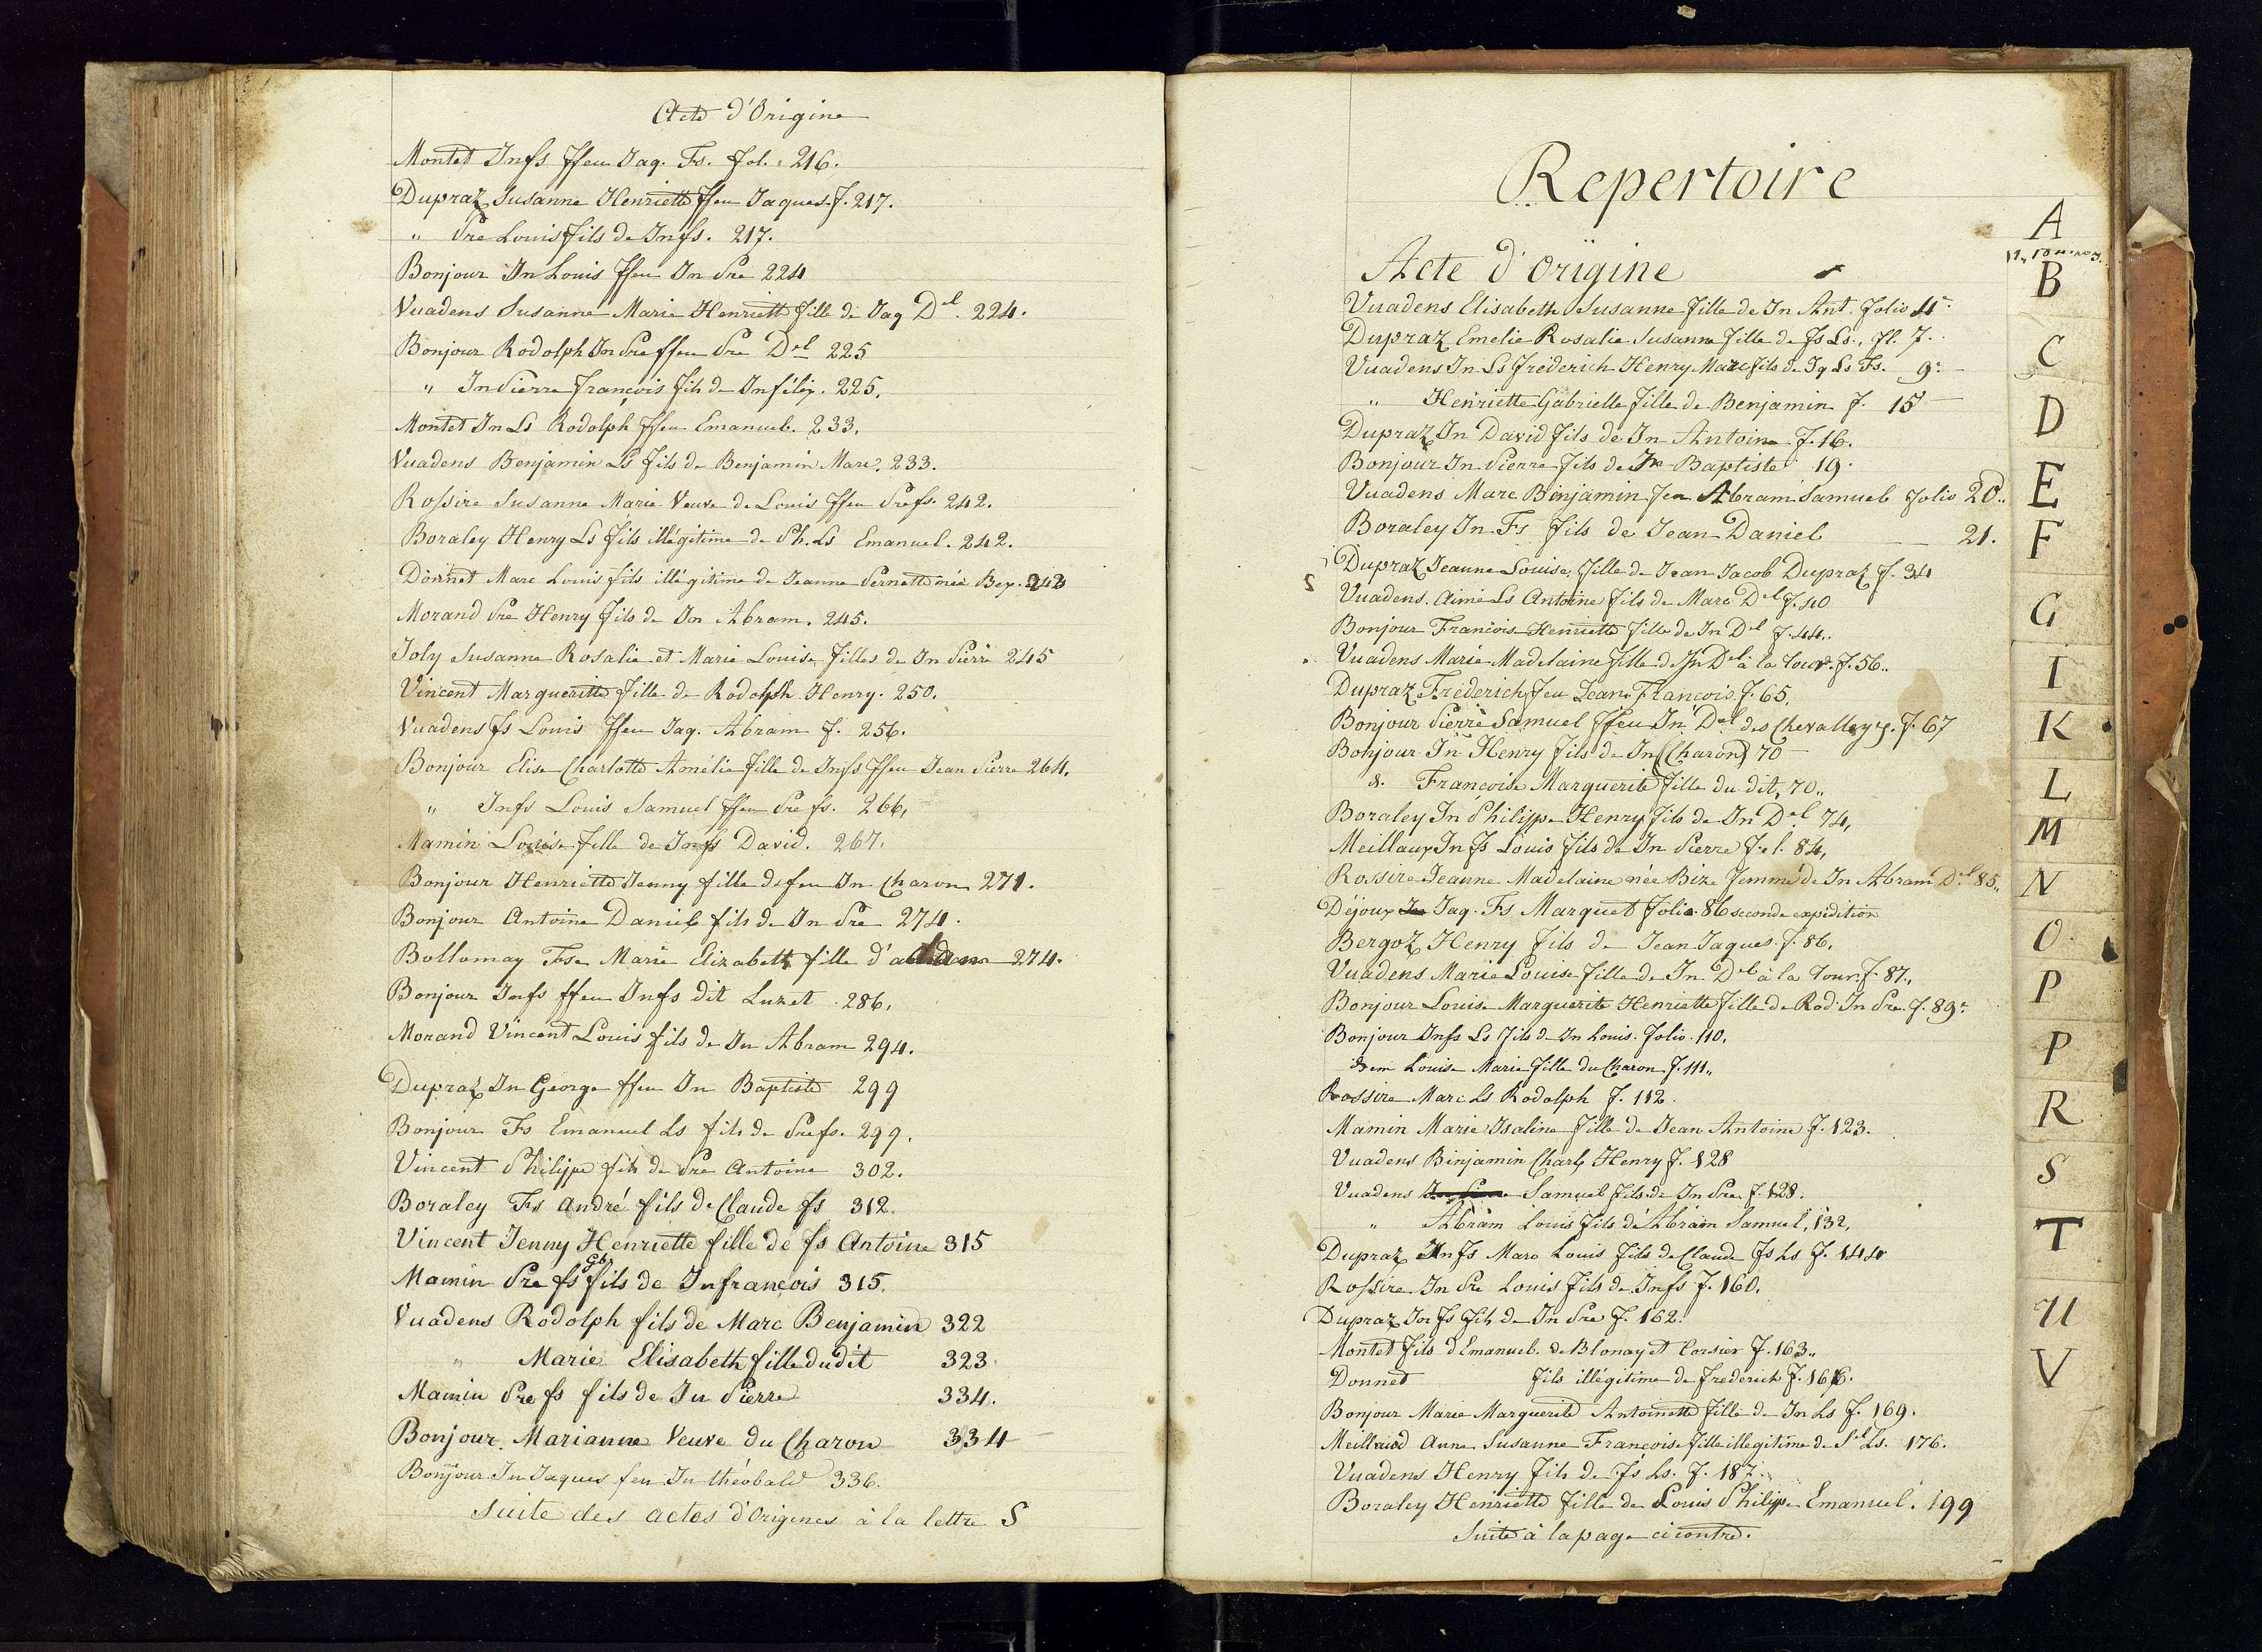 Acte d'Origine
Montet Jnfs ffeu Jaq. Fs. fol. 216.
Dupraz Susanne Henriette ffeu Jaques f. 217.
" Pre Louis fils de Jnfs. 217.
Bonjour Jn Louis ffeu Jn Pre 224
Vuadens Susanne Marie Henriette fille de Jaq Del. 224.
Bonjour Rodolph Jn Pre ffeu Pre Del 225
" Jn Pierre françois fils de Jn 225.
Montet Jn Ls Rodolph ffeu Emanuel. 233.
Vuadens Benjamin Ls fils de Benjamin Marc. 233.
Rossire Susanne Marie Veuve de Louis ffeu Prefs. 242.
Boraley Henry Ls fils illégitime de Ph. Ls Emanuel. 242.
Donnet Marc Louis fils illégitime de Jeanne Pernette née Bex. 242
Morand Pre Henry fils de Jn Abram. 245.
Joly Susanne Rosalie et Marie Louise filles de Jn Pierre 245
Vincent Margueritte fille de Rodolph Henry. 250.
Vuadens fs Louis ffeu Jaq. Abram f. 256.
Bonjour Elise Charlotte Amélie fille de Jnfs ffeu Jean Pierre 264.
" Jnfs Louis Samuel ffeu Pre fs. 266,
Mamin Louise fille de Jnfs David. 267.
Bonjour Henriette Jenny fille de feu Jn Charon 271.
Bonjour Antoine Daniel fils de Jn Pre 274.
Bollomay Fse Marie Elizabeth fille d'adam 274.
Bonjour Jnfs ffeu Jnfs dit Luzet 286.
Morand Vincent Louis fils de Jn Abram 294.
Dupraz Jn George ffeu Jn Baptiste 299
Bonjour Fs Emanuel Ls fils de Prefs. 299.
Vincent Philippe fils de Pre Antoine 302.
Boraley Fs André fils de Claude fs 312.
Vincent Jenny Henriette fille de fs Antoine 315
Mamin Pre fs Gb fils de Jn francois 315.
Vuadens Rodolph fils de Marc Benjamin 322
" Marie Elisabeth fille du dit 323
Mamin Pre fs fils de Jn Pierre 334.
Bonjour Marianne Veuve du Charon 334
Bonjour Jn Jaques feu Jn théobald 336.
Suite des actes d'Origines à la lettre S
Repertoire
Acte d'Origine
Vuadens Elisabeth Susanne fille de Jn Ant. folio 4
Dupraz Emelie Rosalie Susanne fille de fs Ls, fl. 7.
Vuadens Jn Ls Frederich Henry Marc fils de Jq Ls Fs. 9.
" Henriette Gabrielle fille de Benjamin f. 15
Dupraz Jn David fils de Jn Antoine f. 16.
Bonjour Jn Pierre fils de Jn Baptiste 19.
Vuadens Marc Binjamin feu Abram Samuel folio 20.
Boraley Jn Fs fils de Jean Daniel 21.
Dupraz Jeanne Louise fille de Jean Jacob Dupraz f. 34
Vuadens Aimé Ls Antoine fils de Marc Del f. 40
Bonjour Francois Henriette fille de Jn Del f. 44.
Vuadens Marie Madelaine fille de Jn Del à la Tour. f. 56.
Dupraz Frederich feu Jean François f. 65.
Bonjour Pierre Samuel ffeu Jn Del des Chevalleyres. f. 67
Bonjour Jn Henry fils de Jn (Charon) 70
&. Françoise Marguerite fille du dit, 70.
Boraley Jn Philippe Henry fils de Jn Del 74,
Meillaux Jn fs Louis fils de Jn Pierre fol. 84,
Rossire Jeanne Madelaine née Bize femme de Jn Abram Del 85.
Déjoux Jaq. Fs Marquet folio 86 seconde expedition
Bergoz Henry fils de Jean Jaques f. 86.
Vuadens Marie Louise fille de Jn Del à la Tour f. 87.
Bonjour Louise Marguerite Henriette fille de Rod. Jn Pre. f. 89.
Bonjour Jnfs Ls fils de Jn Louis. folio 110.
idem Louise Marie fille du Charon f. 111.
Rossire Marc Ls Rodolph f. 112.
Mamin Marie Isaline fille de Jean Antoine f. 123.
Vuadens Binjamin Charls Henry f. 128
Vuadens Samuel fils de Jn Pre f. 128.
" Abram Louis fils d'Abram Samuel, 132.
Dupraz Jn fs Marc Louis fils de Claude fs Ls f. 144
Rossire Jn Pre Louis fils de Jnfs f. 160.
Dupraz Jn fs fils de Jn Pre f. 162.
Montet fils d'Emanuel de Blonay et Corsier f. 163.
Donnet fils illégitime de frederich f. 166.
Bonjour Marie Marguerite Antoinette fille de Jn Ls f. 169.
Meillaud Anne Susanne Françoise fille illegitime de Sel Ls. 176.
Vuadens Henry fils de Fs Ls. f. 187.
Boraley Henriette fille de Louis Philippe Emanuel. 199
Suite à la page ci contre.
A
B
C
D
E
F
G
I
K
L
M
N
O
P
P
R
S
T
U
V